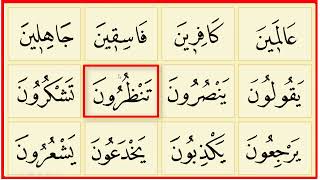 عَالَمِينَ كَافِرِينَ فَاسِقِينَ جَاهِلِينَ
يَقُولُونَ يَنْصُرُونَ تَنْظُرُونَ تَشْكُرُونَ
يَرْجِعُونَ يَكْذِبُونَ يَخْدَعُونَ يَشْعُرُونَ